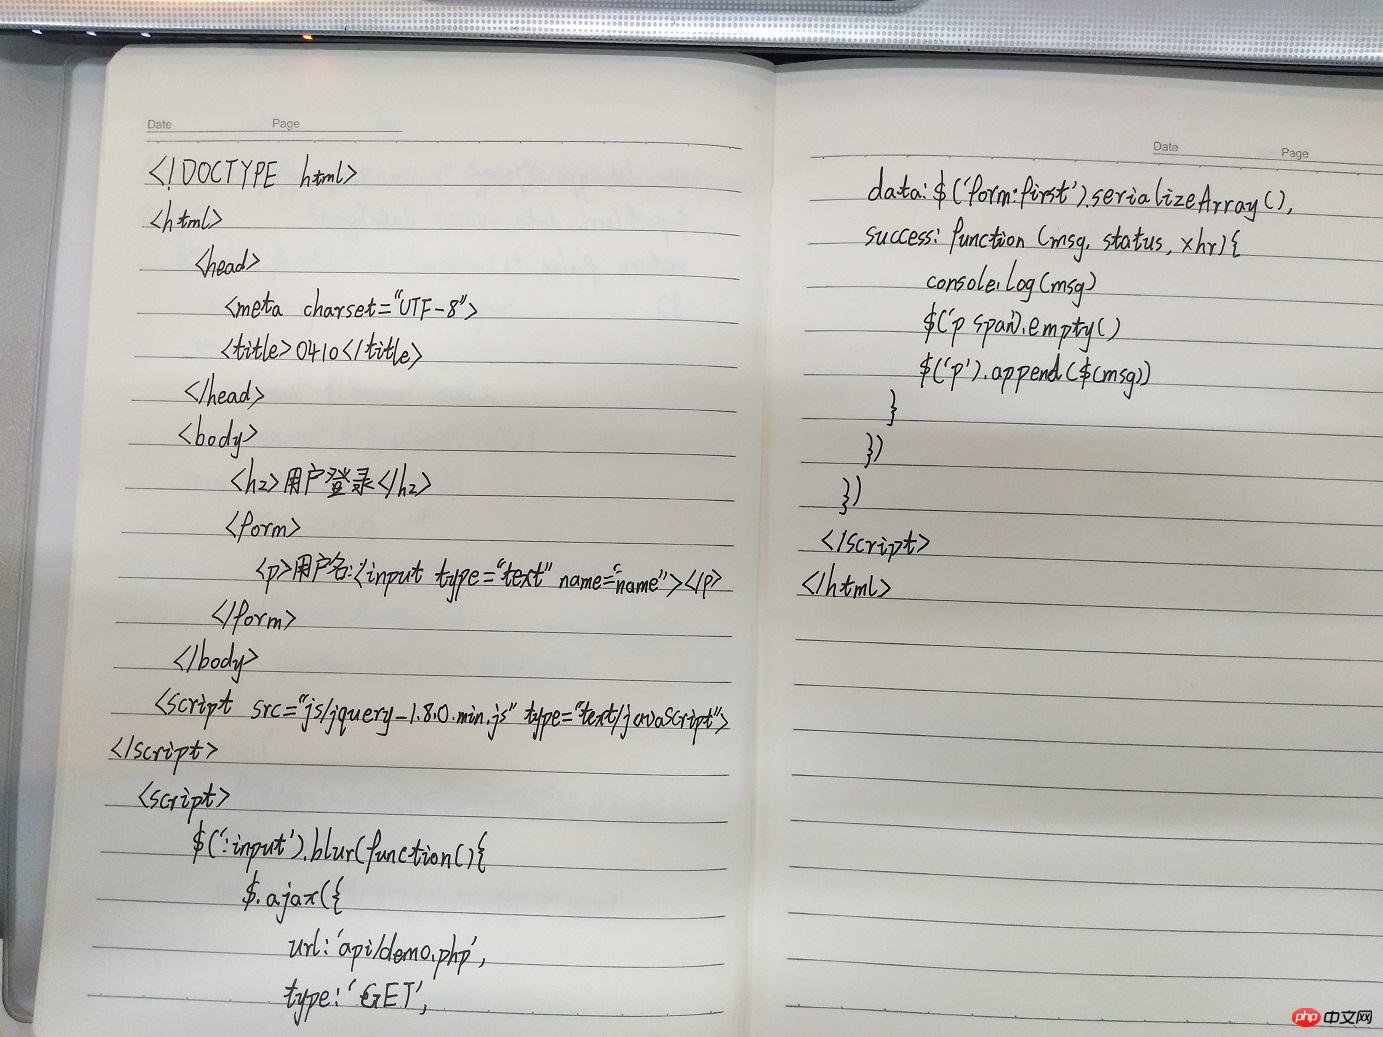 Date Page
<!DOCTYPE html>
<html>
<head>
<meta charset="UTF-8">
<title>0410</title>
</head>
<body>
<h2>用户登录</h2>
<form>
<p>用户名:<input type="text" name="name"></p>
</form>
</body>
<script src="js/jquery-1.8.0.min.js" type="text/javascript">
</script>
<script>
$(':input').blur(function(){
$.ajax({
url:'api/demo.php',
type:'GET',
Date Page
data:$('form:first').serializeArray(),
success: function (msg, status, xhr){
console.log(msg)
$('p span').empty()
$('p').append($(msg))
}
})
})
</script>
</html>
php 中文网